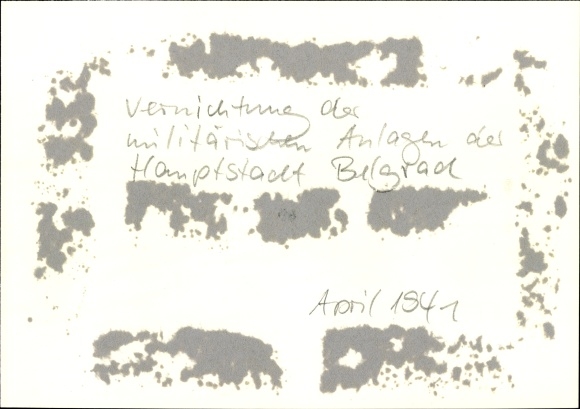 Vernichtung der
militärischen Anlagen der
Hauptstadt Belgrad
April 1941